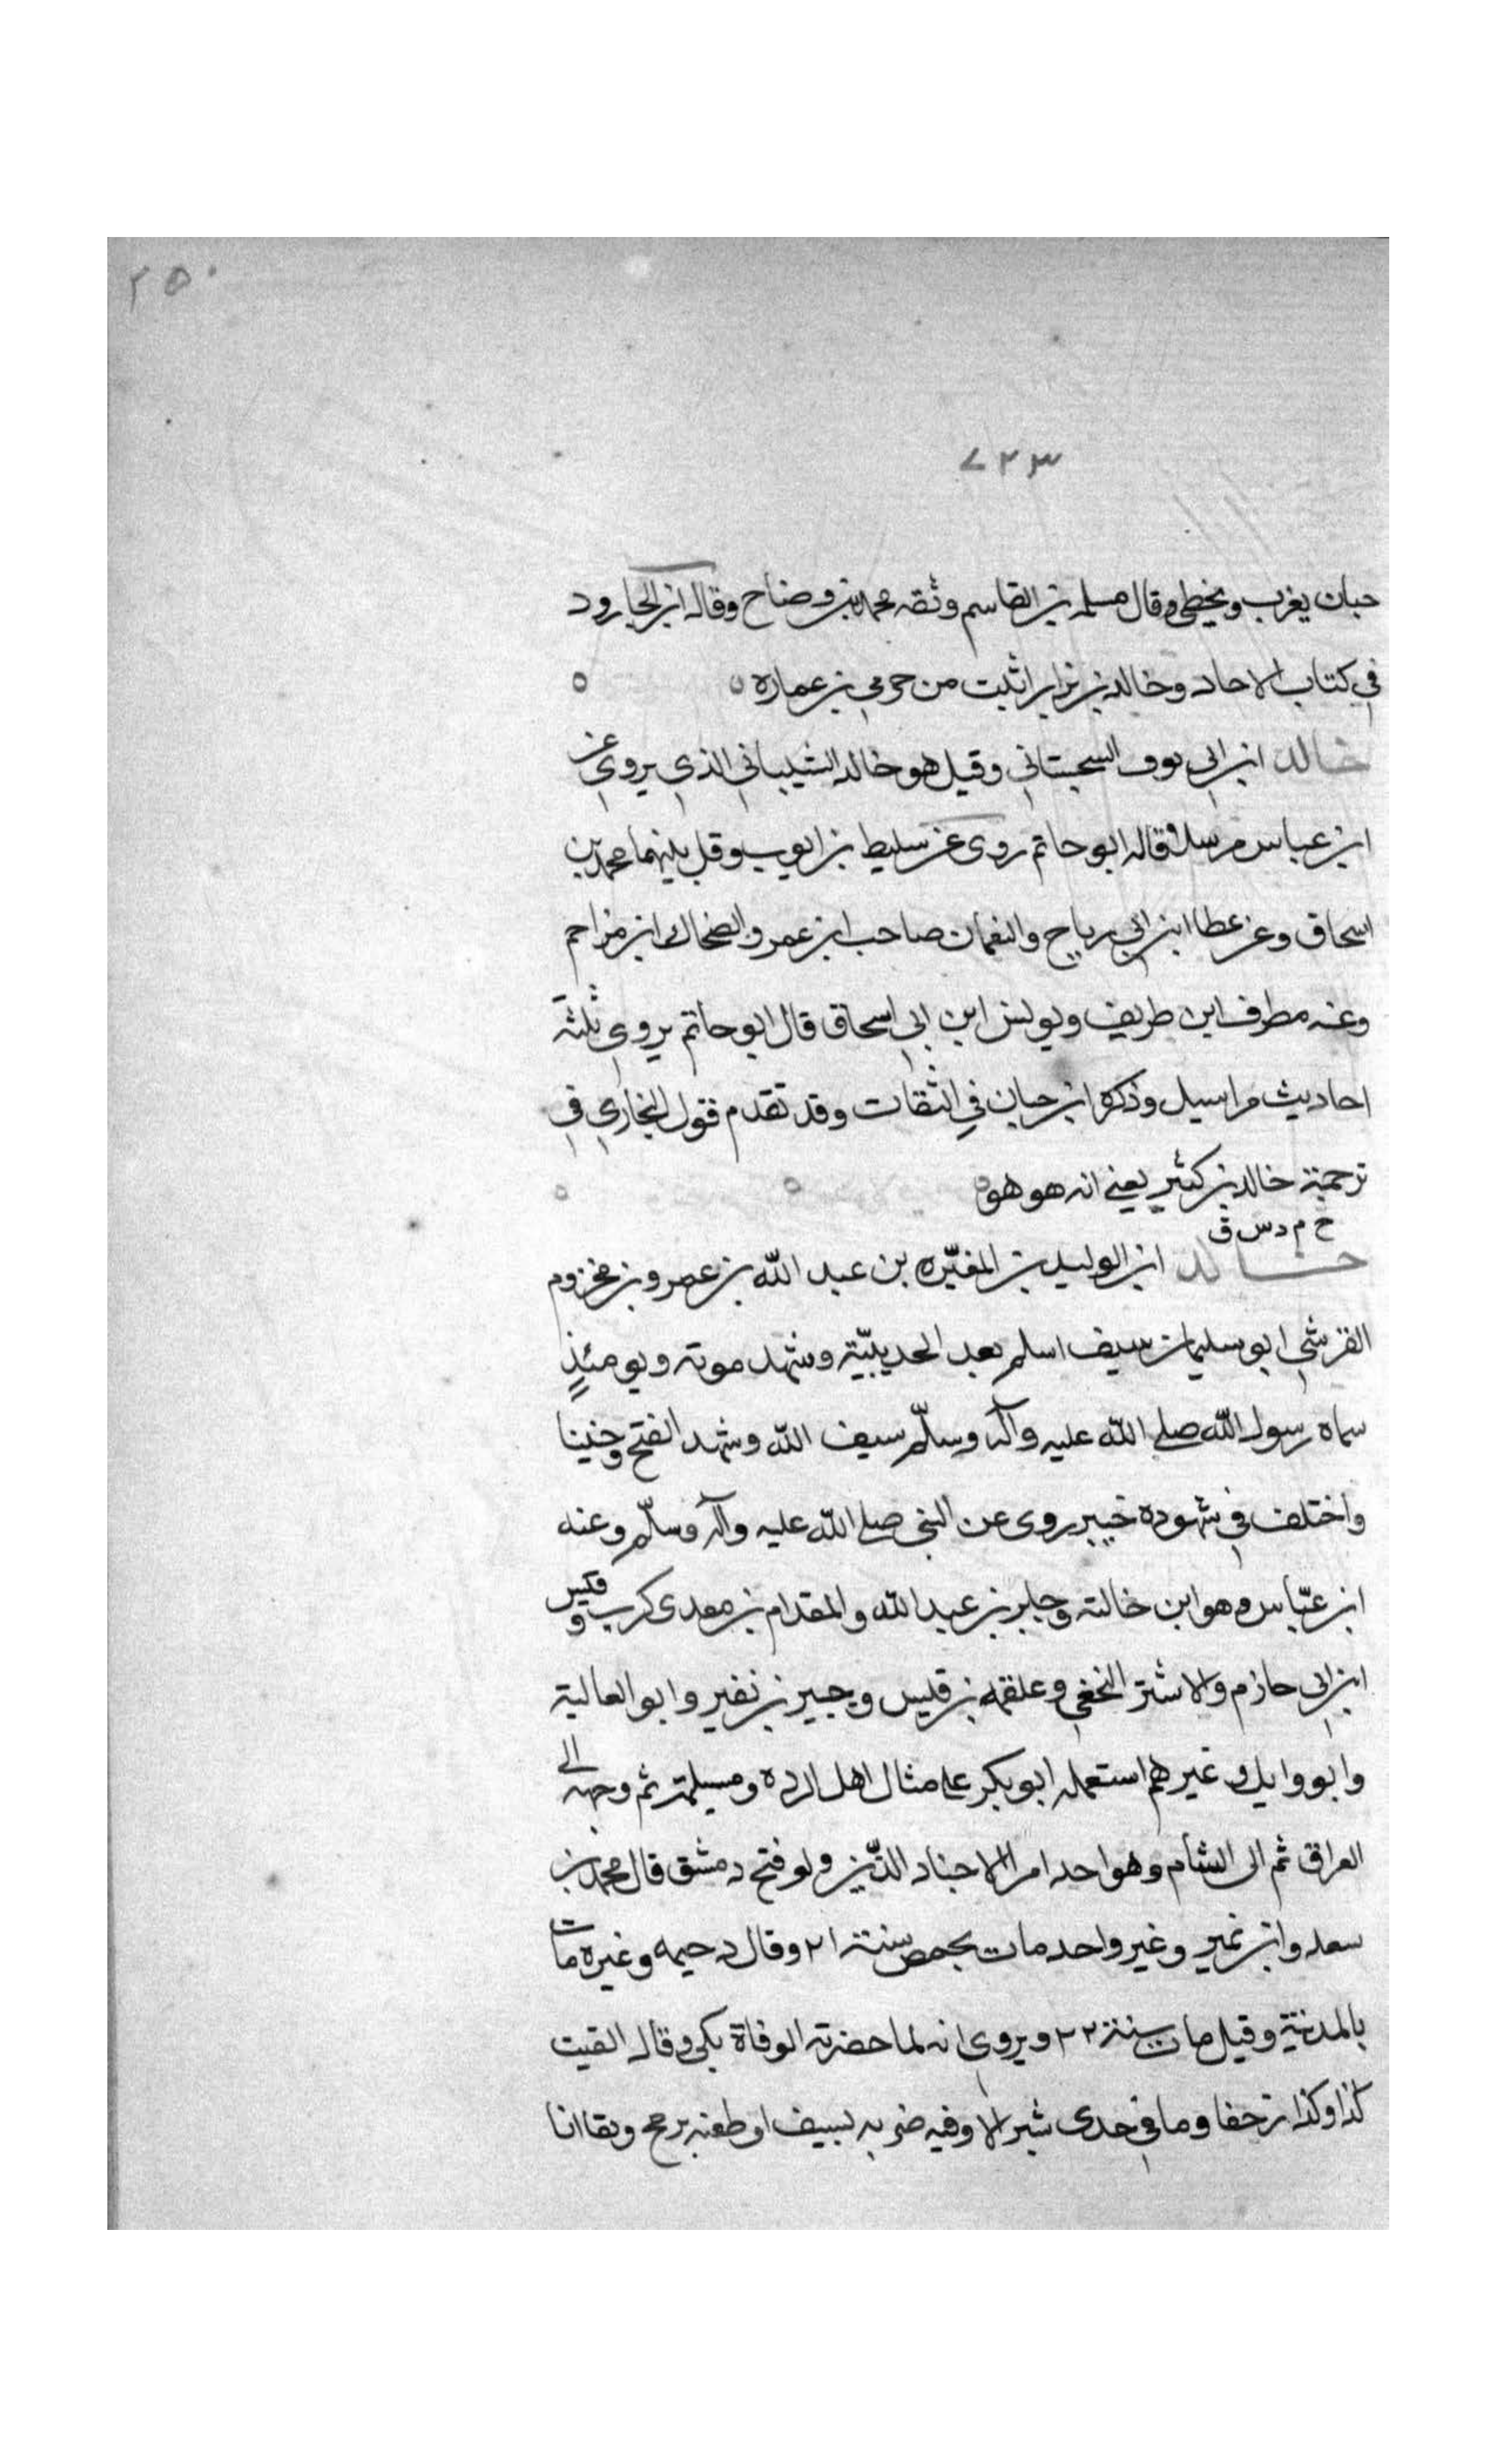 ٢٥٠
٧٢٣
حبان يغرب ويخطى وقال مسلمه بن القاسم وثقه محمد بن وضاح وقال ابن الجارود
في كتاب الاحاد وخالد بن نزار اثبت من حرمي بن عماره
خالد ابن ابى نوف السجستاني وقيل هو خالد الشيباني الذي يروي عن
ابن عباس مرسلا قاله ابو حاتم روى عن سليط بن ايوب وقيل بينهما محمد بن
اسحاق وعن عطا ابن ابي رباح والنعمان صاحب ابن عمر والضحاك ابن مزاحم
وعنه مطرف ابن طريف ويونس ابن ابي اسحاق قال ابو حاتم يروي ثلثة
احاديث مراسيل وذكره ابن حبان في الثقات وقد تقدم قول البخاري في
ترجمة خالد بن كثير يعني انه هو هو
خ م د س ق
خالد ابن الوليد بن المغيّره بن عبد الله بن عمرو بن مخزوم
القرشي ابو سليمان سيف اسلم بعد الحديبيّة وشهد موته ويومئذٍ
سماه رسول الله صلى الله عليه وآله وسلّم سيف الله وشهد الفتح وحنينا
واختلف في شهوده خيبر روى عن النبي صلى الله عليه وآله وسلّم وعنه
ابن عبّاس وهو ابن خالته وجابر بن عبد الله والمقدام بن معدى كرب وقيس
ابن ابى حازم والاشتر النخعي وعلقمه بن قيس وجبير بن نفير وابو العالية
وابو وايل وغيرهم استعمله ابو بكر على مثال اهل الرده ومسيلمة ثم وجهه الى
العراق ثم الى الشأم وهو احد امرا الاجناد الذّين ولو فتح دمشق قال محمد بن
سعد وابن نمير وغير واحد مات بحمص سنة ٢١ وقال دحيم وغيره مات
بالمدينة وقيل مات سنة ٢٢ ويروي انه لما حضرته الوفاة بكى وقال لقيت
كذا وكذا زحفا وما في جسدى شبر الا وفيه ضربه بسيف او طعنه برمح وها انا